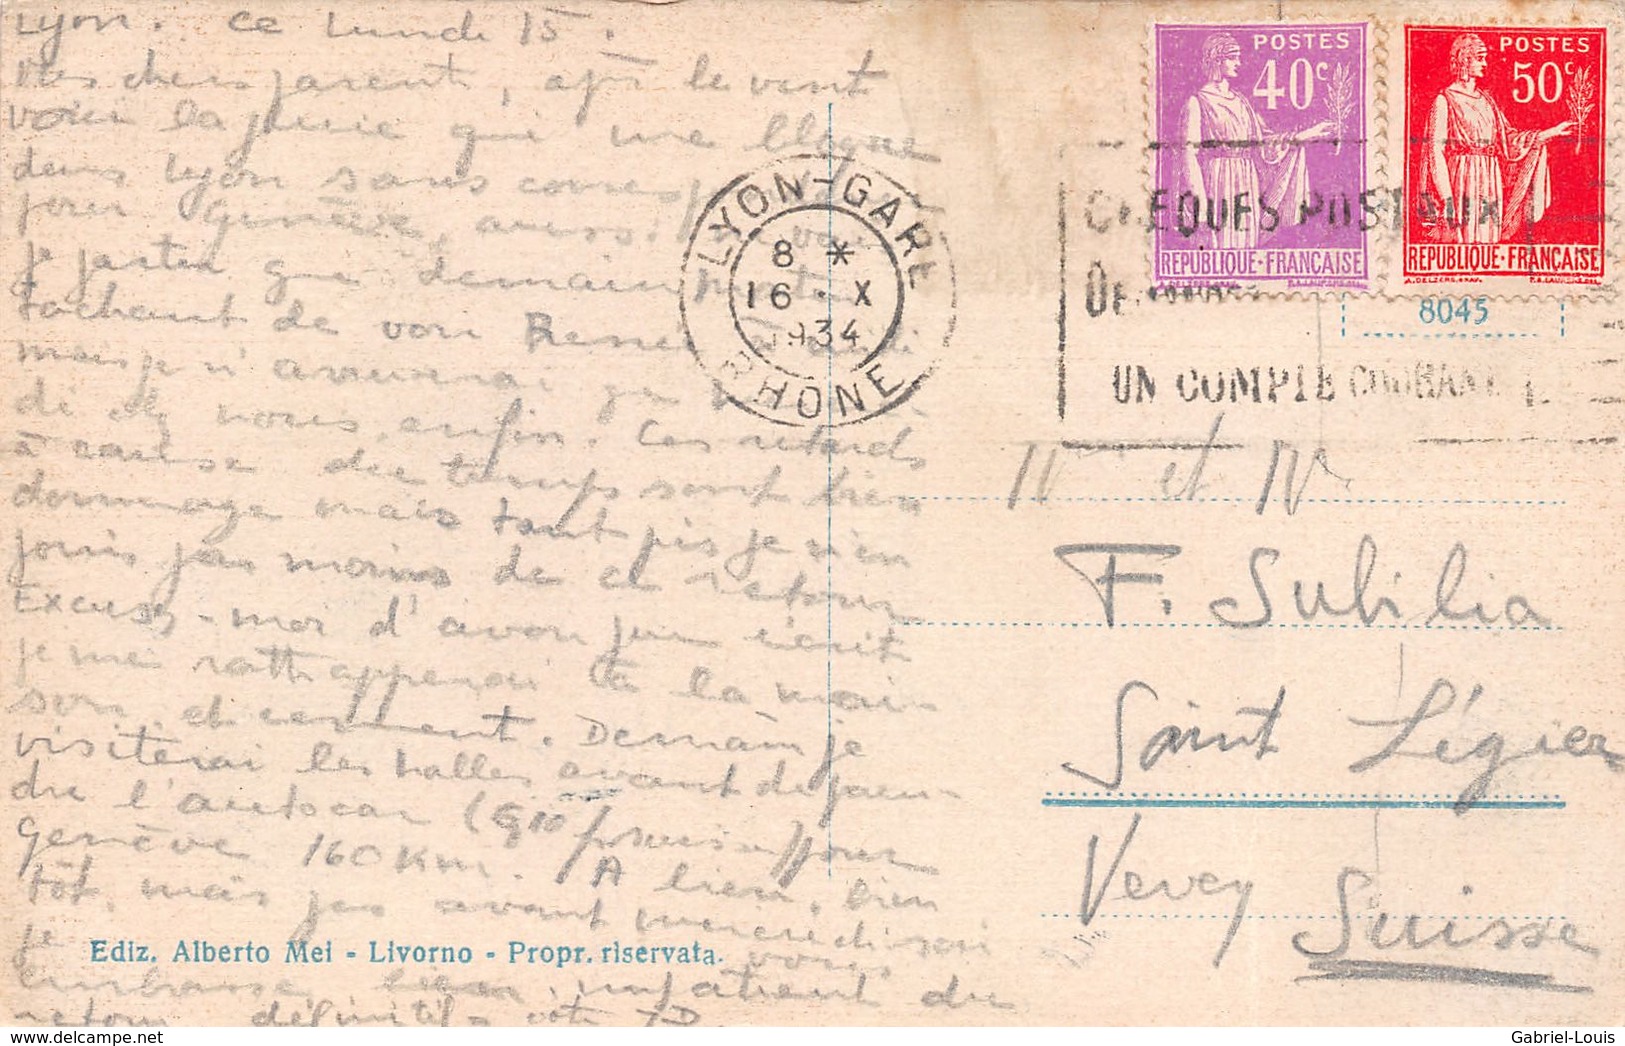 Lyon. Ce Lundi 15.
Mes chers parent, après le vent
voici la pluie qui me bloque
dans Lyon sans corresp
pour Genève, aussi
je partir que demain
tachant de voir Renée à midi
mais je n'arriverai
di chez vous enfin. Ces retards
à cause du temps sont bien
dommage mais tant pis je n'en
jouis pas moins de ce retour
Excusez-moi d'avoir peu écrit
je me rattrapperai à la mai-
son, et comment. Demain je
visiterai les halles avant de pren-
dre l'autocar (G10 pour
Genève 160 Km. A bien, bien
tôt mais pas avant mercredi soir
je vous
embrasse bien impatient du
retour définitif - votre
Ediz. Alberto Mei - Livorno - Propr. riservata.
LYON-GARE
8 *
16 - X
1934
RHÔNE
POSTES
40c
REPUBLIQUE·FRANÇAISE
POSTES
50c
REPUBLIQUE·FRANÇAISE
CHEQUES POSTAUX
UN COMPTE COURANT
8045
M et Me
F. Subilia
Saint Légier
Vevey
Suisse
www.delcampe.net
Gabriel-Louis